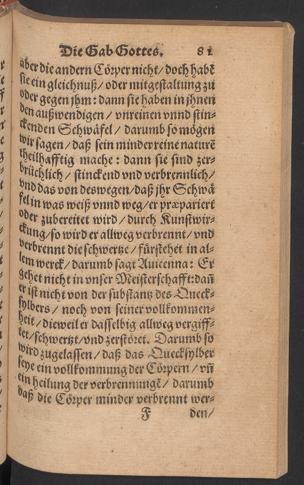 Die Gab Gottes. 81
aber die andern Cörper nicht / doch habẽ
sie ein gleichnuß / oder mitgestaltung zu
oder gegen jhm: dann sie haben in jhnen
den außwendigen / vnreinen vnnd stin-
ckenden Schwäfel / darumb so mögen
wir sagen / daß sein minder reine naturẽ
theilhafftig mache : dann sie sind zer-
brüchlich / stinckend vnd verbrennlich /
vnd das von deswegen / daß jhr Schwä
fel in was weiß vnnd weg / er præpariert
oder zubereitet wird / durch Kunstwir-
ckung / so wird er allweg verbrennt / vnd
verbrennt die schwertze / fürstehet in al-
lem werck / darumb sagt Auicenna: Er
gehet nicht in vnser Meisterschafft: dañ
er ist nicht von der substantz des Queck-
sylbers / noch von seiner vollkommen-
heit / dieweil er dasselbig allweg vergiff-
tet / schwertzt / vnd zerstöret. Darumb so
wird zugelassen / daß das Quecksylber
seye ein vollkommung der Cörpern / vñ
ein heilung der verbrennungẽ / darumb
daß die Cörper minder verbrennt wer-
F den /